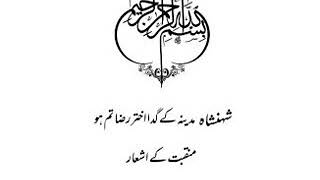 بسم الله الرحمن الرحيم
شہنشاہ مدینہ کے گدا اختر رضا تم ہو
منقبت کے اشعار